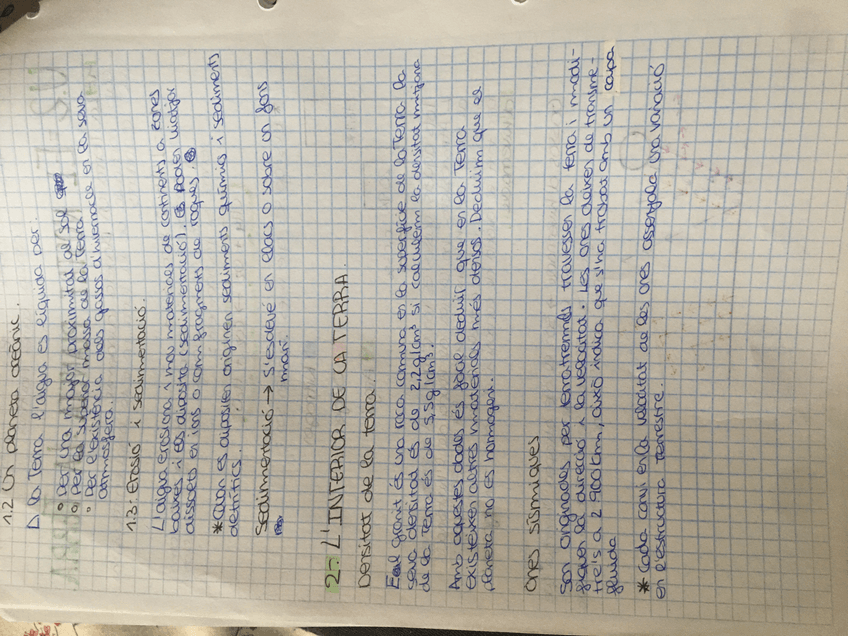 1.2 Un planeta oceànic.
A la Terra l'aigua és líquida per:
Per una major proximitat al Sol
Per la superior massa de la Terra.
Per l'existència dels gasos d'hivernacle en la seva
atmosfera.
1.3: Erosió i sedimentació.
L'aigua erosiona i mou materials de continents a zones
baixes i els diposita (sedimentació). Es poden viatjar
dissolts en ions o com fragments de roques.
* Quan es dipositen originen sediments químics i sediments
detrítics.
Sedimentació → S'esdevé en llacs o sobre un fons
marí.
2. L'INTERIOR DE LA TERRA.
Densitat de la terra.
El granit és una roca comuna en la superfície de la Terra la
seva densitat és de 2,2g/cm³ si calculem la densitat mitjana
de la Terra és de 5,5g/cm³.
Amb aquestes dades és fàcil deduir que en la Terra
existeixen altres materials més densos. Deduïm que el
planeta no és homogeni.
Ones sísmiques
Són originades per terratrèmols travessen la terra i modi-
fiquen la direcció i la velocitat. Les ones deixen de transme-
tre's a 2.900km, això indica que s'ha trobat amb un capa
fluida
* Cada canvi en la velocitat de les ones assenyala una variació
en l'estructura terrestre.